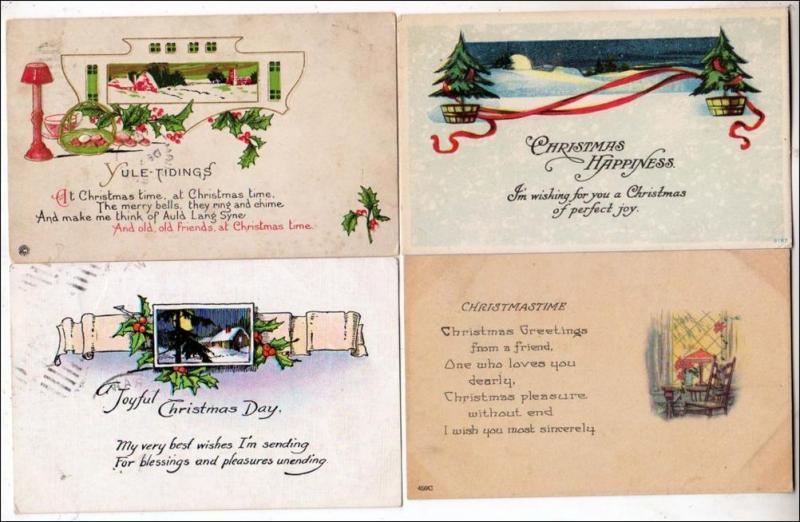 YULE-TIDINGS
At Christmas time, at Christmas time,
The merry bells, they ring and chime
And make me think of Auld Lang Syne
And old, old friends, at Christmas time.
CHRISTMAS
HAPPINESS.
I'm wishing for you a Christmas
of perfect joy.
A Joyful
Christmas Day.
My very best wishes I'm sending
For blessings and pleasures unending.
CHRISTMASTIME
Christmas Greetings
from a friend,
One who loves you
dearly,
Christmas pleasure
without end
I wish you most sincerely.